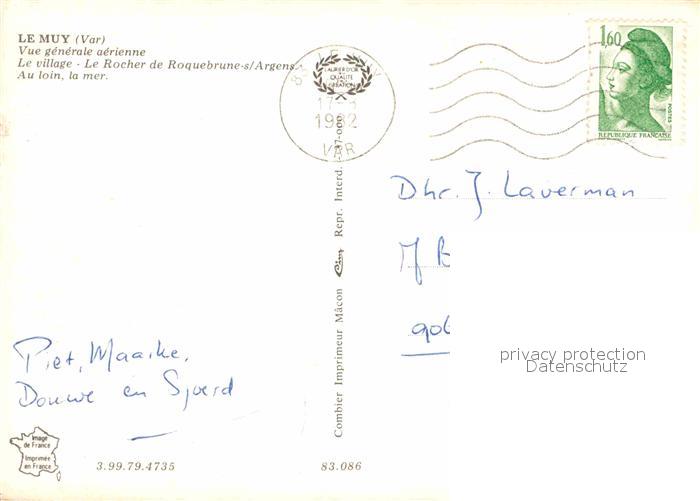 LE MUY (Var)
Vue générale aérienne
Le village - Le Rocher de Roquebrune-s/Argens.
Au loin, la mer.
LE MUY
LAURIER D'OR
QUALITÉ
CRÉATION
1982
VAR
1,60
POSTES
REPUBLIQUE FRANÇAISE
Dhr. J. Laverman
906
privacy protection
Datenschutz
Piet, Maaike,
Douwe en Sjoerd
Combier Imprimeur Mâcon Cim Repr. Interd.
Image
de France
Imprimée
en France
3.99.79.4735
83.086